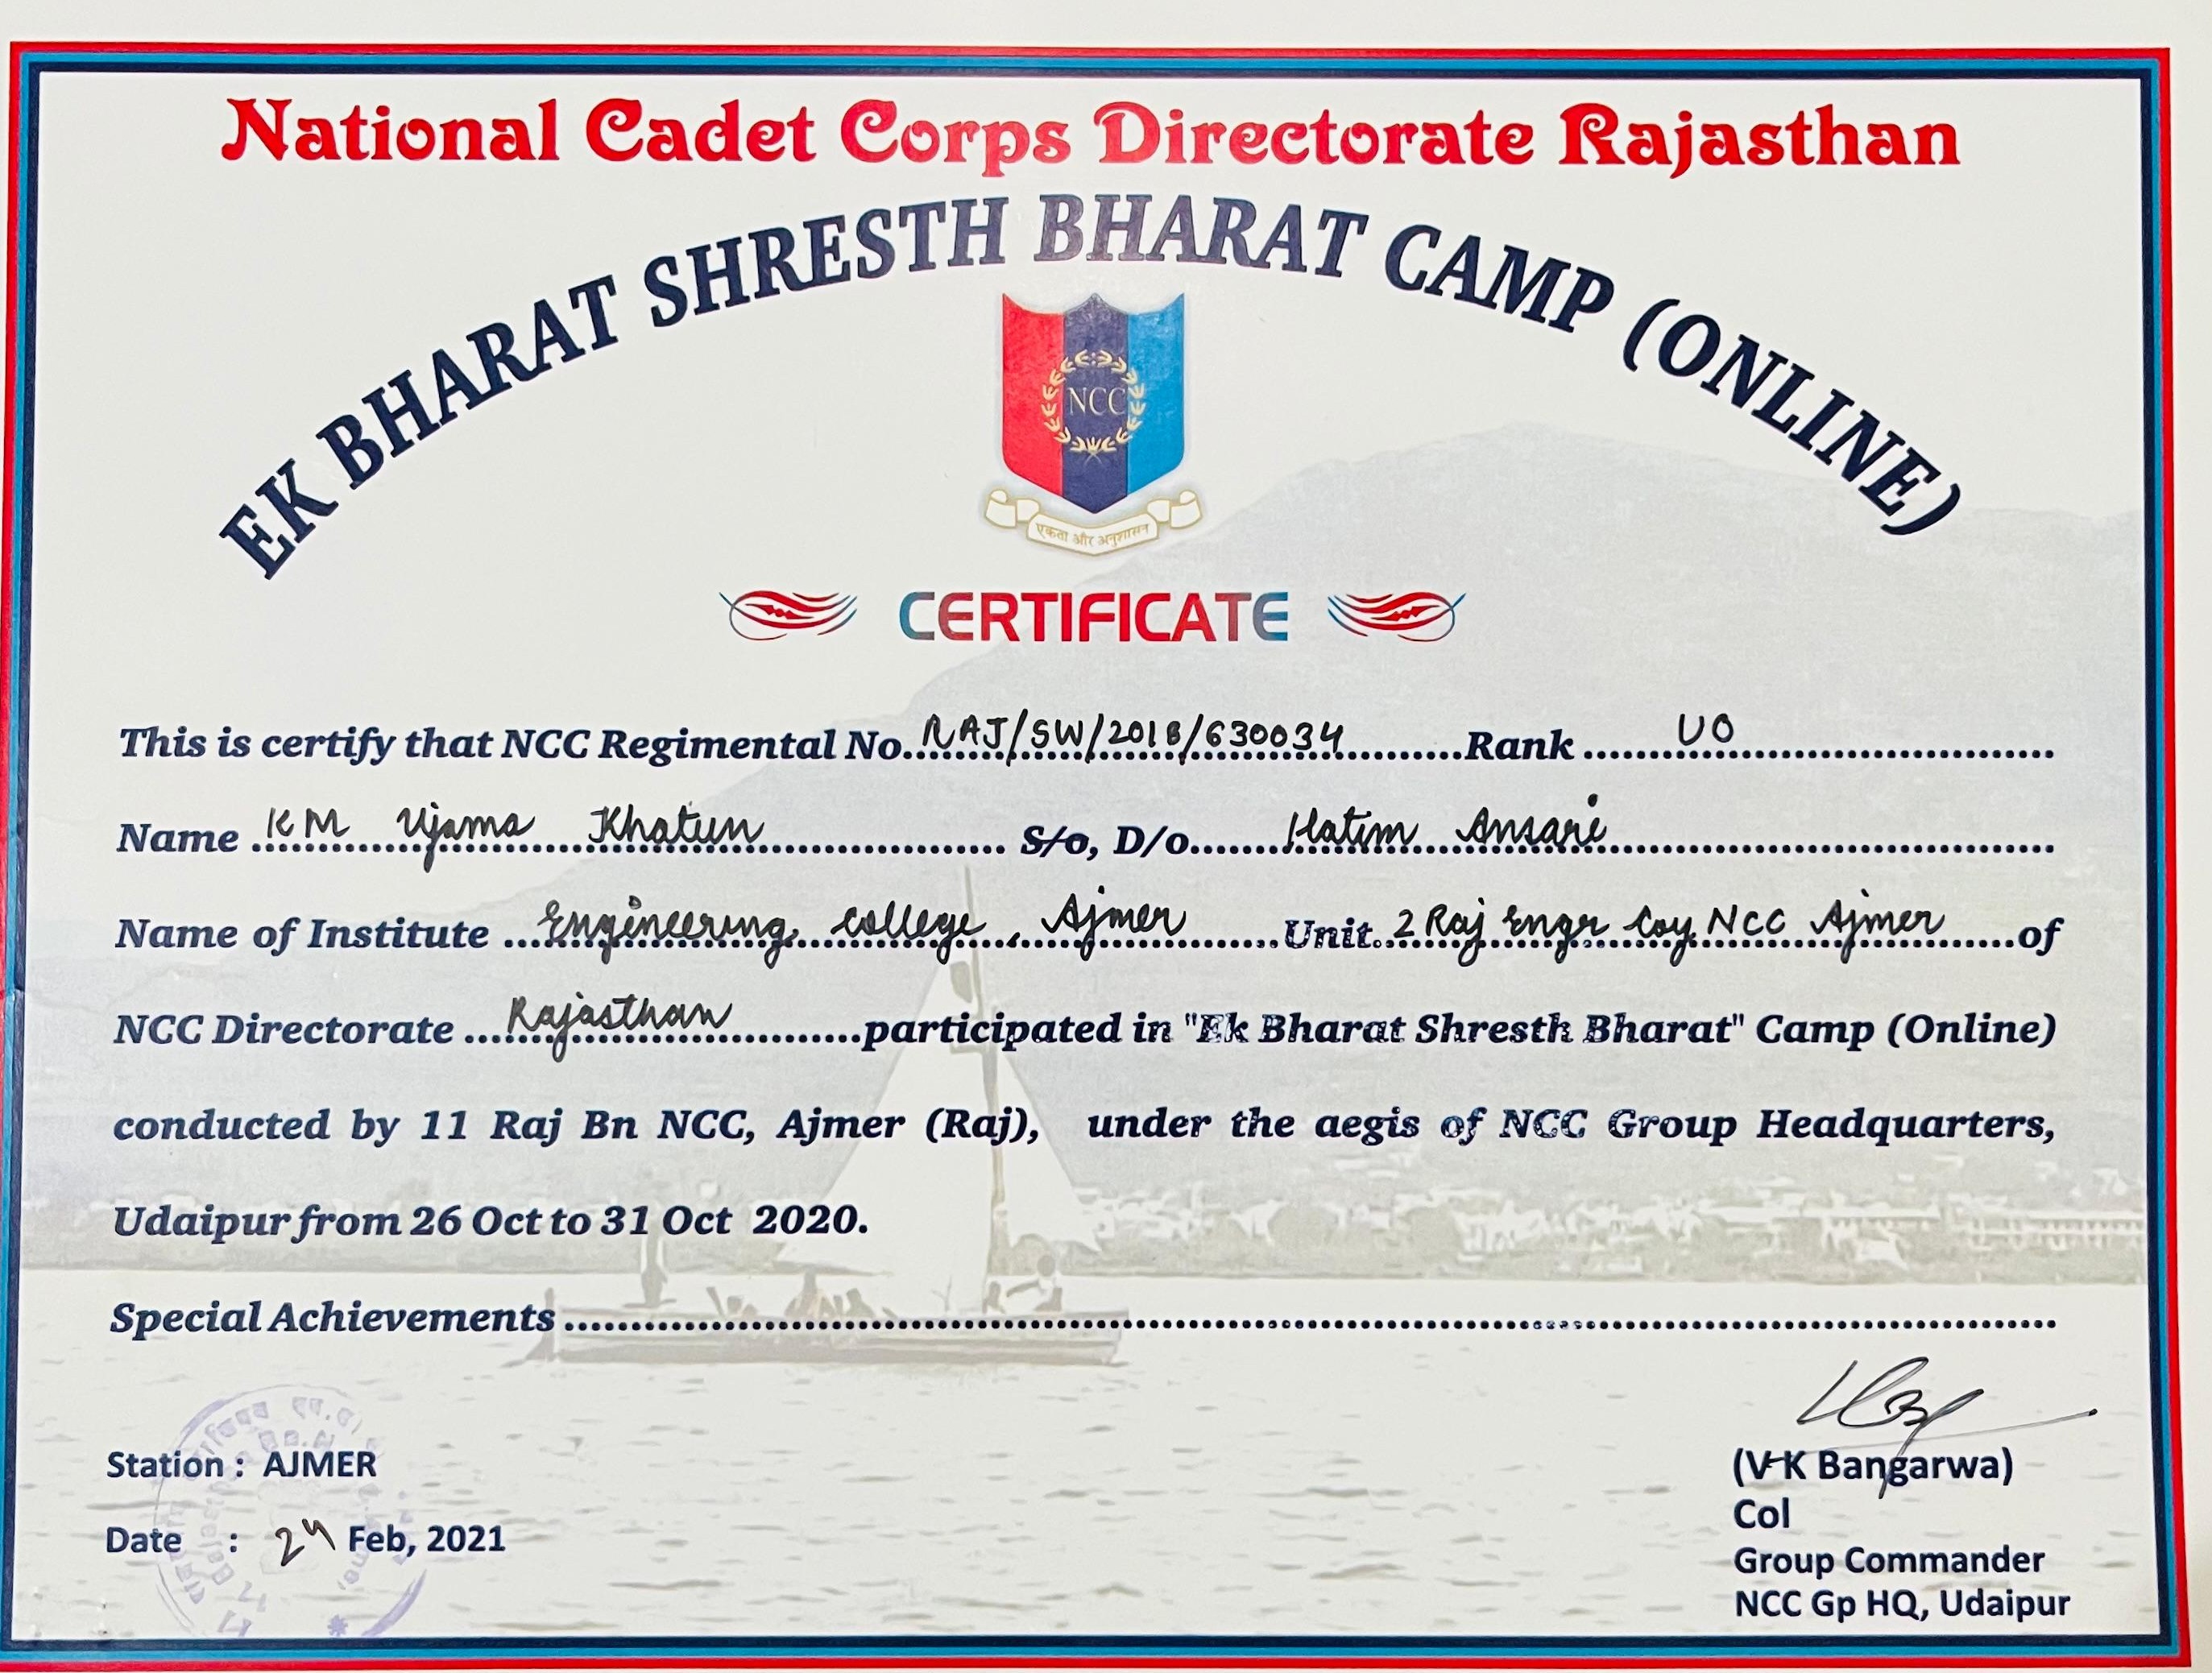 National Cadet Corps Directorate Rajasthan
EK BHARAT SHRESTH BHARAT CAMP (ONLINE)
NCC
एकता और अनुशासन
CERTIFICATE
This is certify that NCC Regimental No. RAJ/SW/2018/630034 Rank UO
Name KM Ujama Khatun S/o, D/o Hatim Ansari
Name of Institute Engineering college, Ajmer Unit 2 Raj Engr Coy NCC Ajmer of
NCC Directorate Rajasthan participated in "Ek Bharat Shresth Bharat" Camp (Online)
conducted by 11 Raj Bn NCC, Ajmer (Raj), under the aegis of NCC Group Headquarters,
Udaipur from 26 Oct to 31 Oct 2020.
Special Achievements
Station : AJMER
Date : 24 Feb, 2021
(V K Bangarwa)
Col
Group Commander
NCC Gp HQ, Udaipur